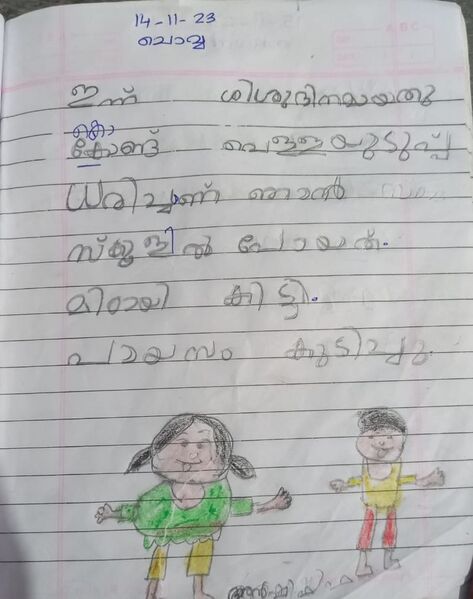 14-11-23
ചൊവ്വ
ഇന്ന് ശിശുദിനമായതു
കൊ
കോണ്ട് വെള്ളയുടുപ്പ്
ധരിച്ചാണ് ഞാൻ
സ്കൂളിൽ പോയത്.
മിഠായി കിട്ടി.
പായസം കുടിച്ചു.